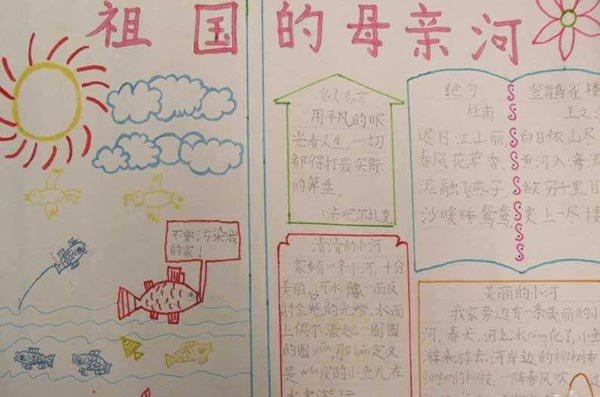 祖国的母亲河
不要污染我
的家！
名人名言
用平凡的眼
光看人生，一切
都得打最实际
的算盘。
清清的小河
家乡有一条小河，十分
美丽，河水像一面反
射金光的光带，水面
上偶尔荡起一圈圈
的圈，那定又
是的小鱼儿在
绝句
杜甫
迟日江山丽，
春风花草香。
泥融飞燕子，
沙暖睡鸳鸯。
登鹳雀楼
王之
白日依山尽
黄河入海流
欲穷千里目
更上一层楼
美丽的小河
我家旁边有一条美丽的小
河，春天，河上冰róng化了，小鱼
游来游去，河岸边的
一阵春风吹